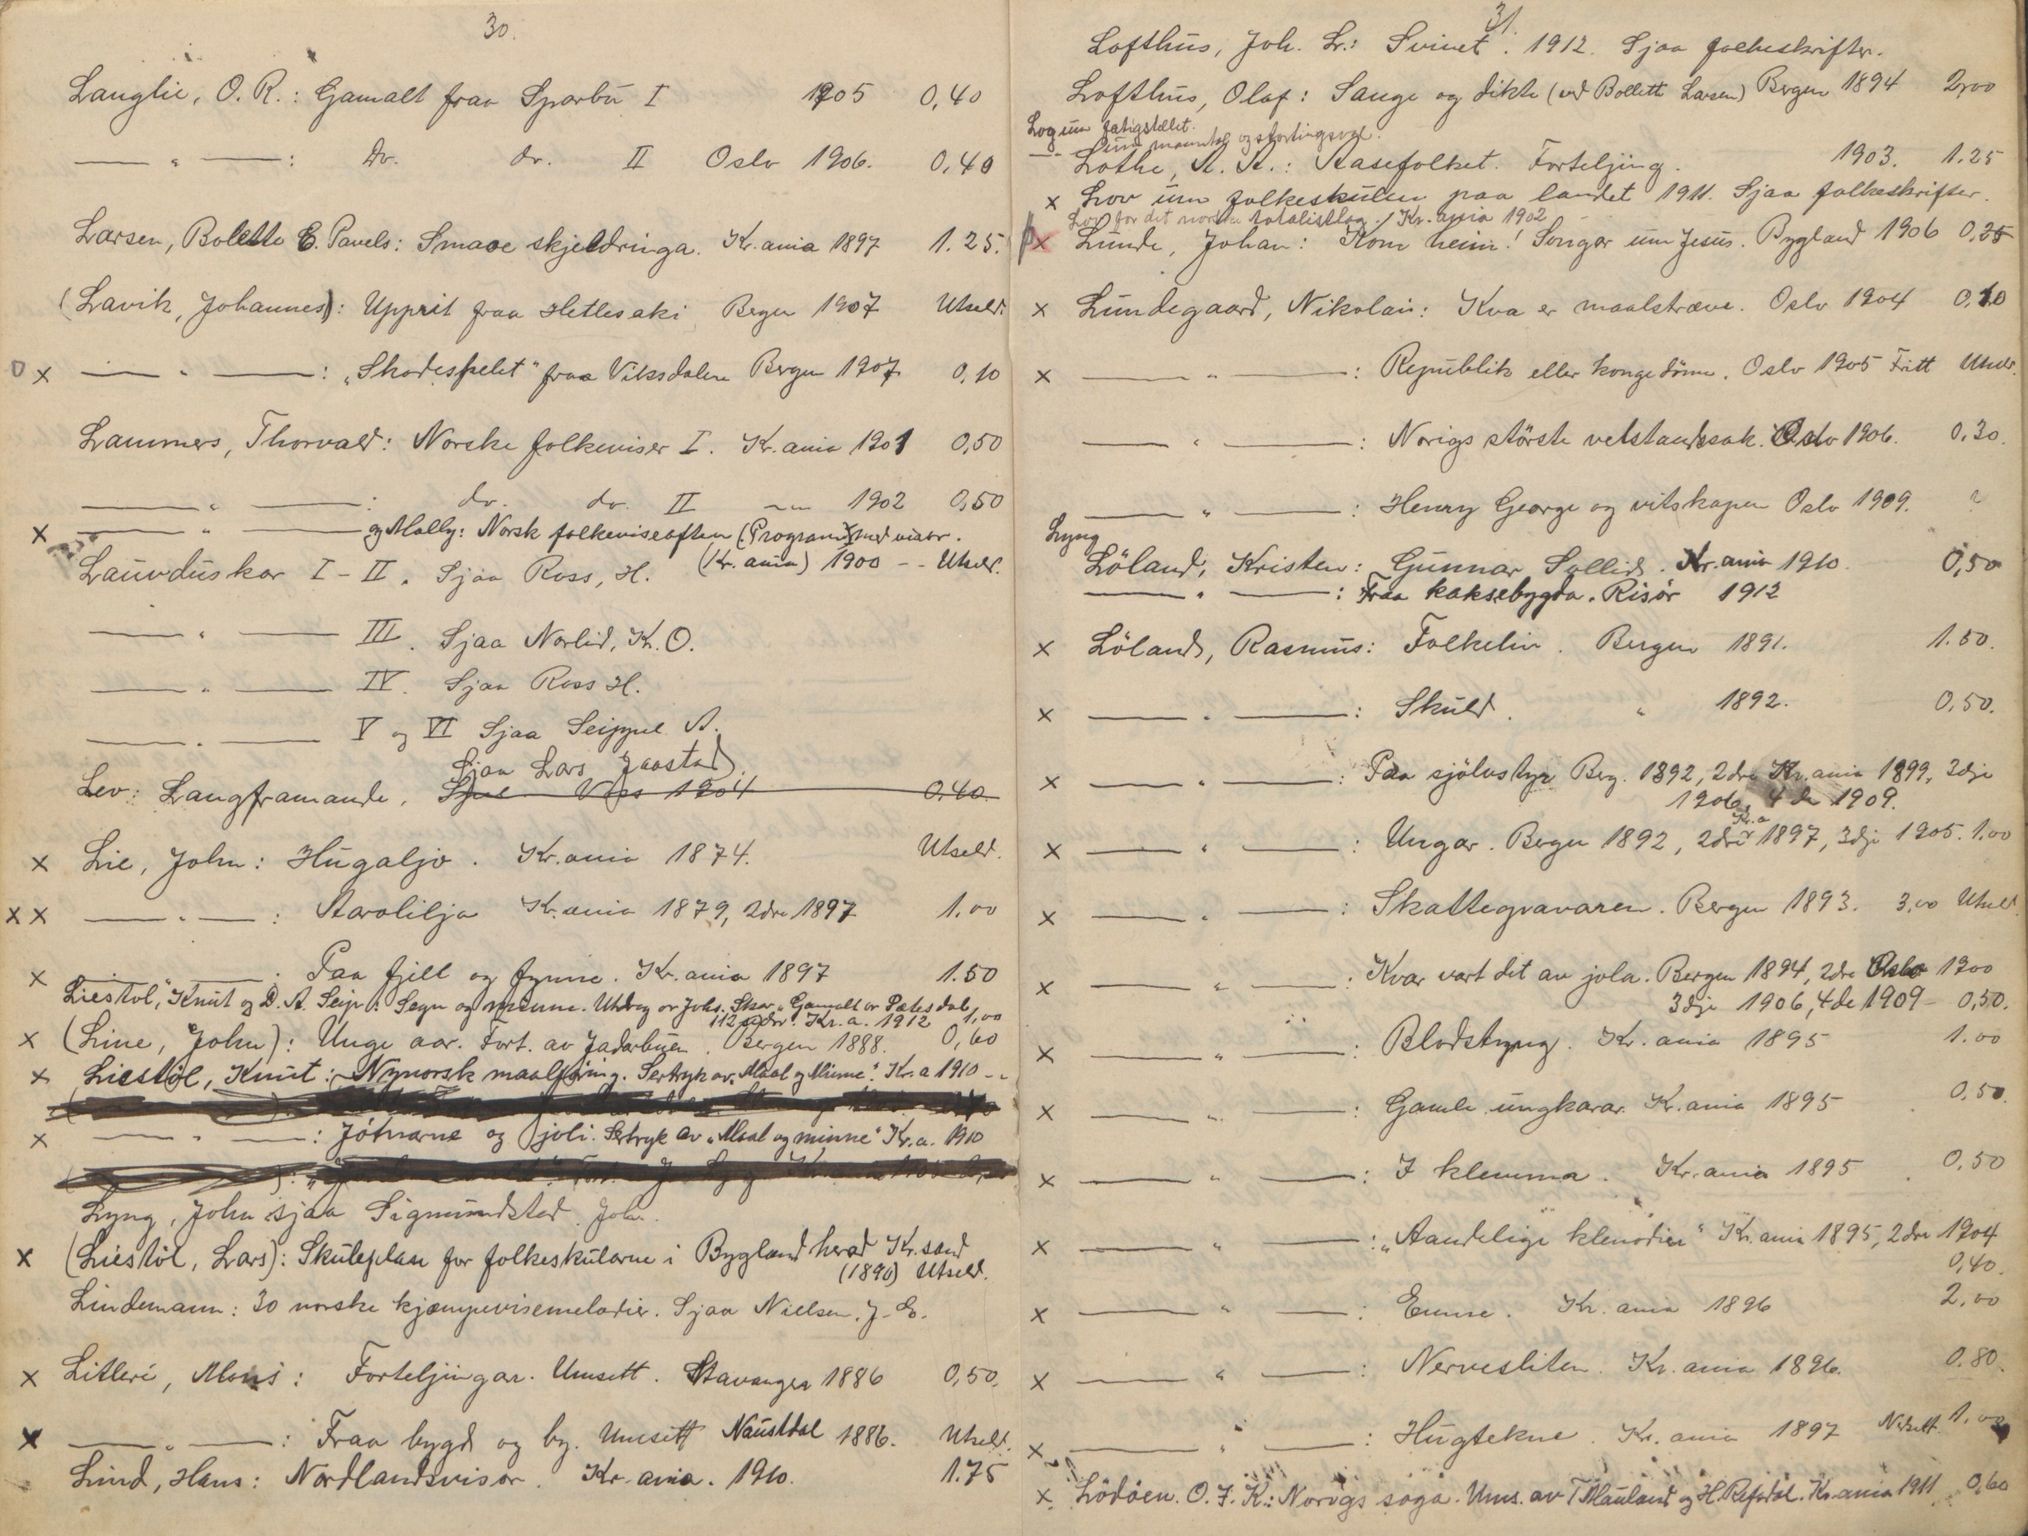 30.
Langlie, O. R.: Gamalt fraa Sparbu I 1905 0,40
— " —: do. do. II Oslo 1906. 0,40
Larsen, Bolette C. Pavels: Smaae skjeldringa. Kr.ania 1897 1.25.
(Lavik, Johannes): Upprit fraa Hetlesaki Bergen 1907 Utseld.
x — " —: „Skodespelet" fraa Viksdalen Bergen 1907 0,10
Lammers, Thorvald: Norske folkeviser I. Kr.ania 1901 0,50
— " —: do. do. II — " — 1902 0,50
x — " — og Mally: Norsk folkeviseaften (Program med visor.
(Kr.ania) 1900 -- Utseld.
Lauvduskar I-II. Sjaa Ross, H.
— " — III. Sjaa Norlid, K. O.
— " — IV. Sjaa Ross H.
— " — V og VI Sjaa Seippel A.
Sjaa Lars Jaastad
Lev: Langframande. Voss 1904 0,40.
x Lie, John: Hugaljo. Kr.ania 1874. Utseld.
x x — " —: Aarolilja Kr.ania 1879, 2dre 1897 1.00
x — " —: Paa fjell og fynne. Kr.ania 1897 1.50
Liestøl, Knut og D. A. Seip: Segn og minne. Utdrag or Johs. Skar „Gamalt or Sætesdal
112 sidor. Kr.a. 1912 1,00
x (Line, John): Unge aar. Fort. av Jadarbuen. Bergen 1888. 0,60
x Liestøl, Knut: Nynorsk maalføring. Sertryk av „Maal og Minne". Kr.a 1910 --
x — " —: Jötnarne og joli. Sertryk av „Maal og minne" Kr.a. 1910
Lyng, John sjaa Sigmundstad. John.
x (Liestøl, Lars): Skuleplan for folkeskularne i Bygland herad Kr.sand
(1890) Utseld.
Lindemann: 30 norske kjæmpevisemelodier. Sjaa Nielsen. J. E.
x Litleré, Mons: Forteljingar. Umsett. Stavanger 1886 0,50.
x — " —: Fraa bygd og by. Umsett Naustdal 1886. Utseld.
Lind, Hans: Nordlandsvisor. Kr.ania. 1910. 1.75
31
Lofthus, Joh. Lr.: Svinet. 1912. Sjaa folkeskrifter.
Lofthus, Olaf: Sange og dikte (ved Bolette Larsen) Bergen 1894 2,00
Log um fatigstellet.
— " — um manntal og stortingsval.
Lothe, A. A.: Aasefolket. Forteljing. 1903. 1.25
x Lov um folkeskulen paa landet 1911. Sjaa folkeskrifter.
Lov for det norske totalistlag. Kr.ania 1902
x Lunde, Johan: Kom heim! Songar um Jesus. Bygland 1906 0,25
x Lundegaard, Nikolai: Kva er maalstræve. Oslo 1904 0,10
x — " —: Republik eller kongedöme. Oslo 1905 Fritt Utseld.
— " —: Norigs störste velstandssak. Oslo 1906. 0,30.
— " —: Henry George og vitskapen Oslo 1909. ?
Lyng
Löland, Kristen: Gunnar Sollid. Kr.ania 1910. 0,50
— " —: Fraa kaksebygda. Risör 1912
x Löland, Rasmus: Folkeliv. Bergen 1891. 1.50.
x — " —: Skuld. " 1892. 0,50.
x — " —: Paa sjölvstyr Berg. 1892, 2dre Kr.ania 1899, 3dje
1906, 4de 1909.
x — " —: Ungar. Bergen 1892, 2dre Kr.a 1897, 3dje 1905. 1.00
x — " —: Skattegravaren. Bergen 1893. 3,00 Utseld.
x — " —: Kvar vart det av jola. Bergen 1894, 2dre Oslo 1900
3dje 1906, 4de 1909 - 0,50.
x — " —: Blodstyng. Kr.ania 1895 1.00
x — " —: Gamle ungkarar. Kr.ania 1895 0,50
x — " —: I klemma. Kr.ania 1895 0,50
x — " —: „Aandelige klenodier" Kr.ania 1895, 2dre 1904
0,40.
x — " —: Emne. Kr.ania 1896 2.00
x — " —: Nervesliten. Kr.ania 1896. 0.80.
x — " —: Hugtekne. Kr.ania 1897 Nedsett. 1.00
x Lödöen. O. F. K.: Norigs soga. Ums. av T. Mauland og H. Refsdal. Kr.ania 1911 0,60